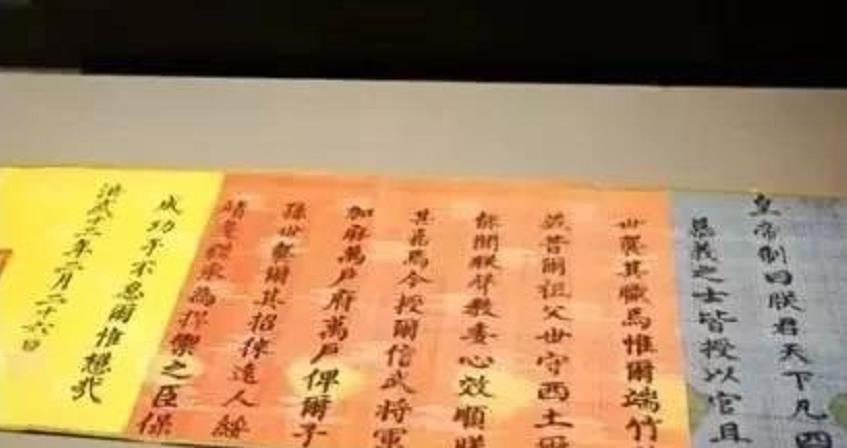 皇帝制曰朕君天下凡四
慕義之士皆授以官且
世襲其職焉惟爾端竹
英昔爾祖父世守西土
爾聞朕聲教委心效順朕
其嘉焉今授爾信武將軍
加麻萬戶府萬戶俾爾子
孫世襲爾其招徠遠人綏
靖為捍禦之臣保
成功于不怠爾惟懋哉
洪武十二年二月二十六日